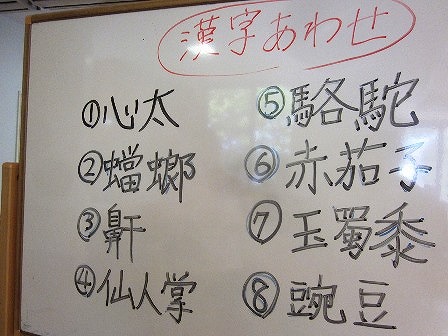 漢字あわせ
①心太
②蟷螂
③鼾
④仙人掌
⑤駱駝
⑥赤茄子
⑦玉蜀黍
⑧豌豆